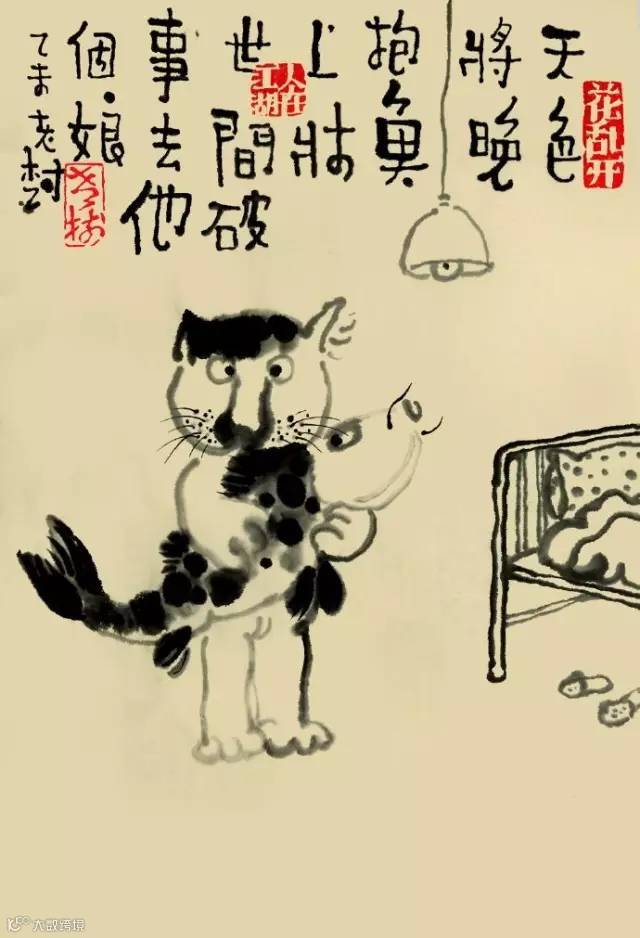 花乱开
天色
將晚
抱魚
上牀
世間破
事去他
個娘
乙未老树
人在江湖
老树
大数跨境